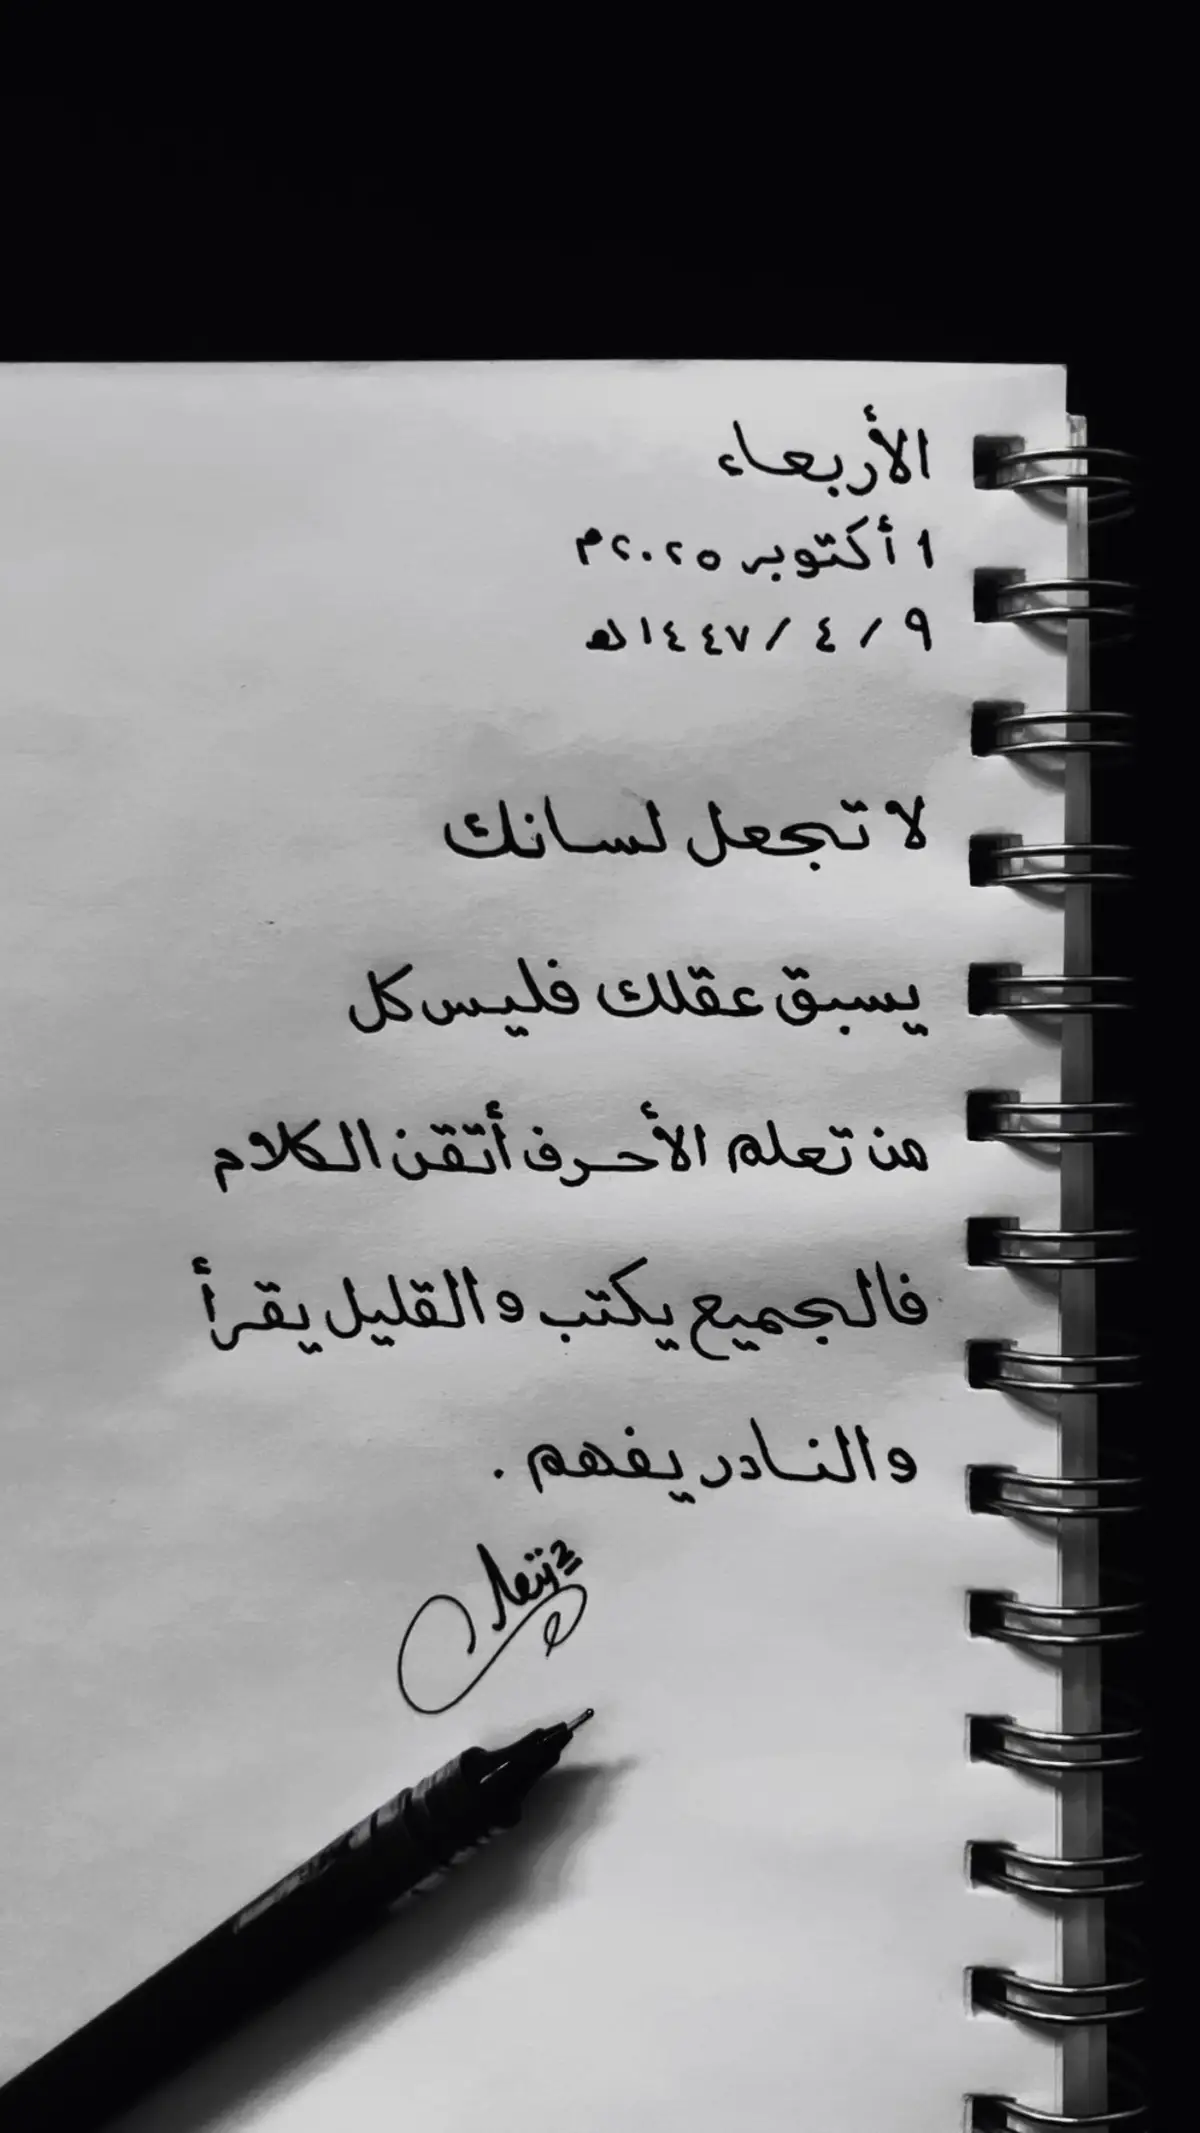 الأربعاء
١ أكتوبر ٢٠٢٥م
٩ / ٤ / ١٤٤٧هـ
لا تجعل لسانك
يسبق عقلك فليس كل
من تعلم الأحرف أتقن الكلام
فالجميع يكتب والقليل يقرأ
والنادر يفهم .